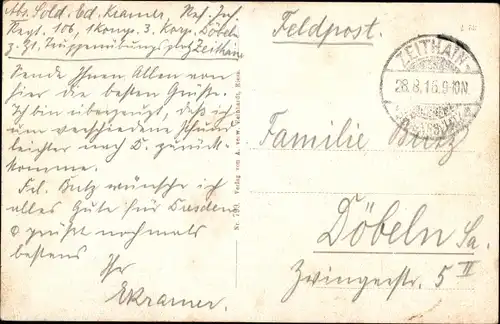 Abs. Sold. Ed. Kramer, Res. Inf.
Regt. 106, 1 Komp. 3. Korp. Döbeln
z. Zt. Truppenübungsplatz Zeithain
Sende Ihnen Allen von
hier die besten Grüße.
Ich bin überzeugt, daß ich
um verschiedene Pfund
leichter nach D. zurück-
komme.
Frl. Butz wünsche ich
alles Gute für Dresden
& grüßt nochmals
bestens Ihr
EKramer.
Nr. 799. Verlag von A. verw. Riesa.
Feldpost.
ZEITHAIN
28.8.16.9-10N
Familie Butz
Döbeln Sa.
Zwingerstr. 5 II